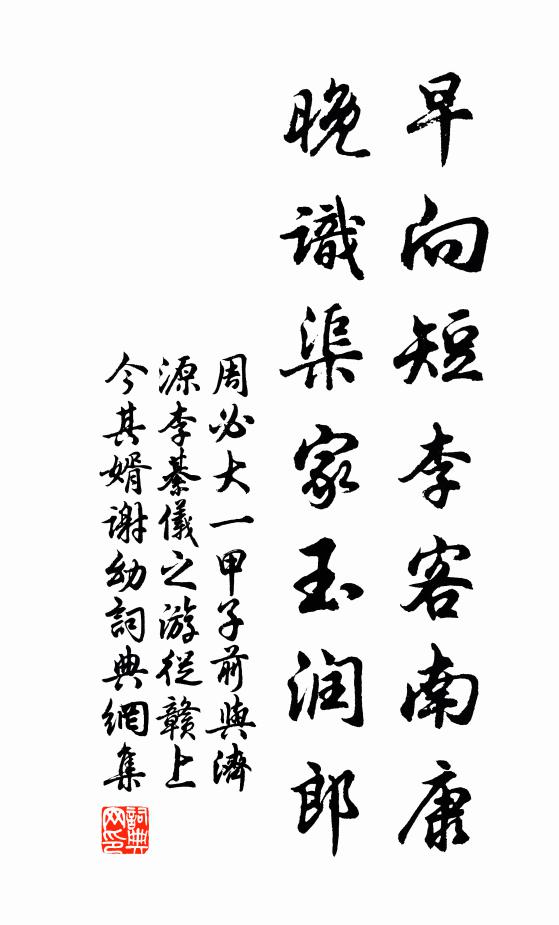 早向短李客南康
晚識渠家玉润郎
周必大一甲子前與濟
源李綦儀之游從贛上
今其婿谢幼詞典網集
詞典网印